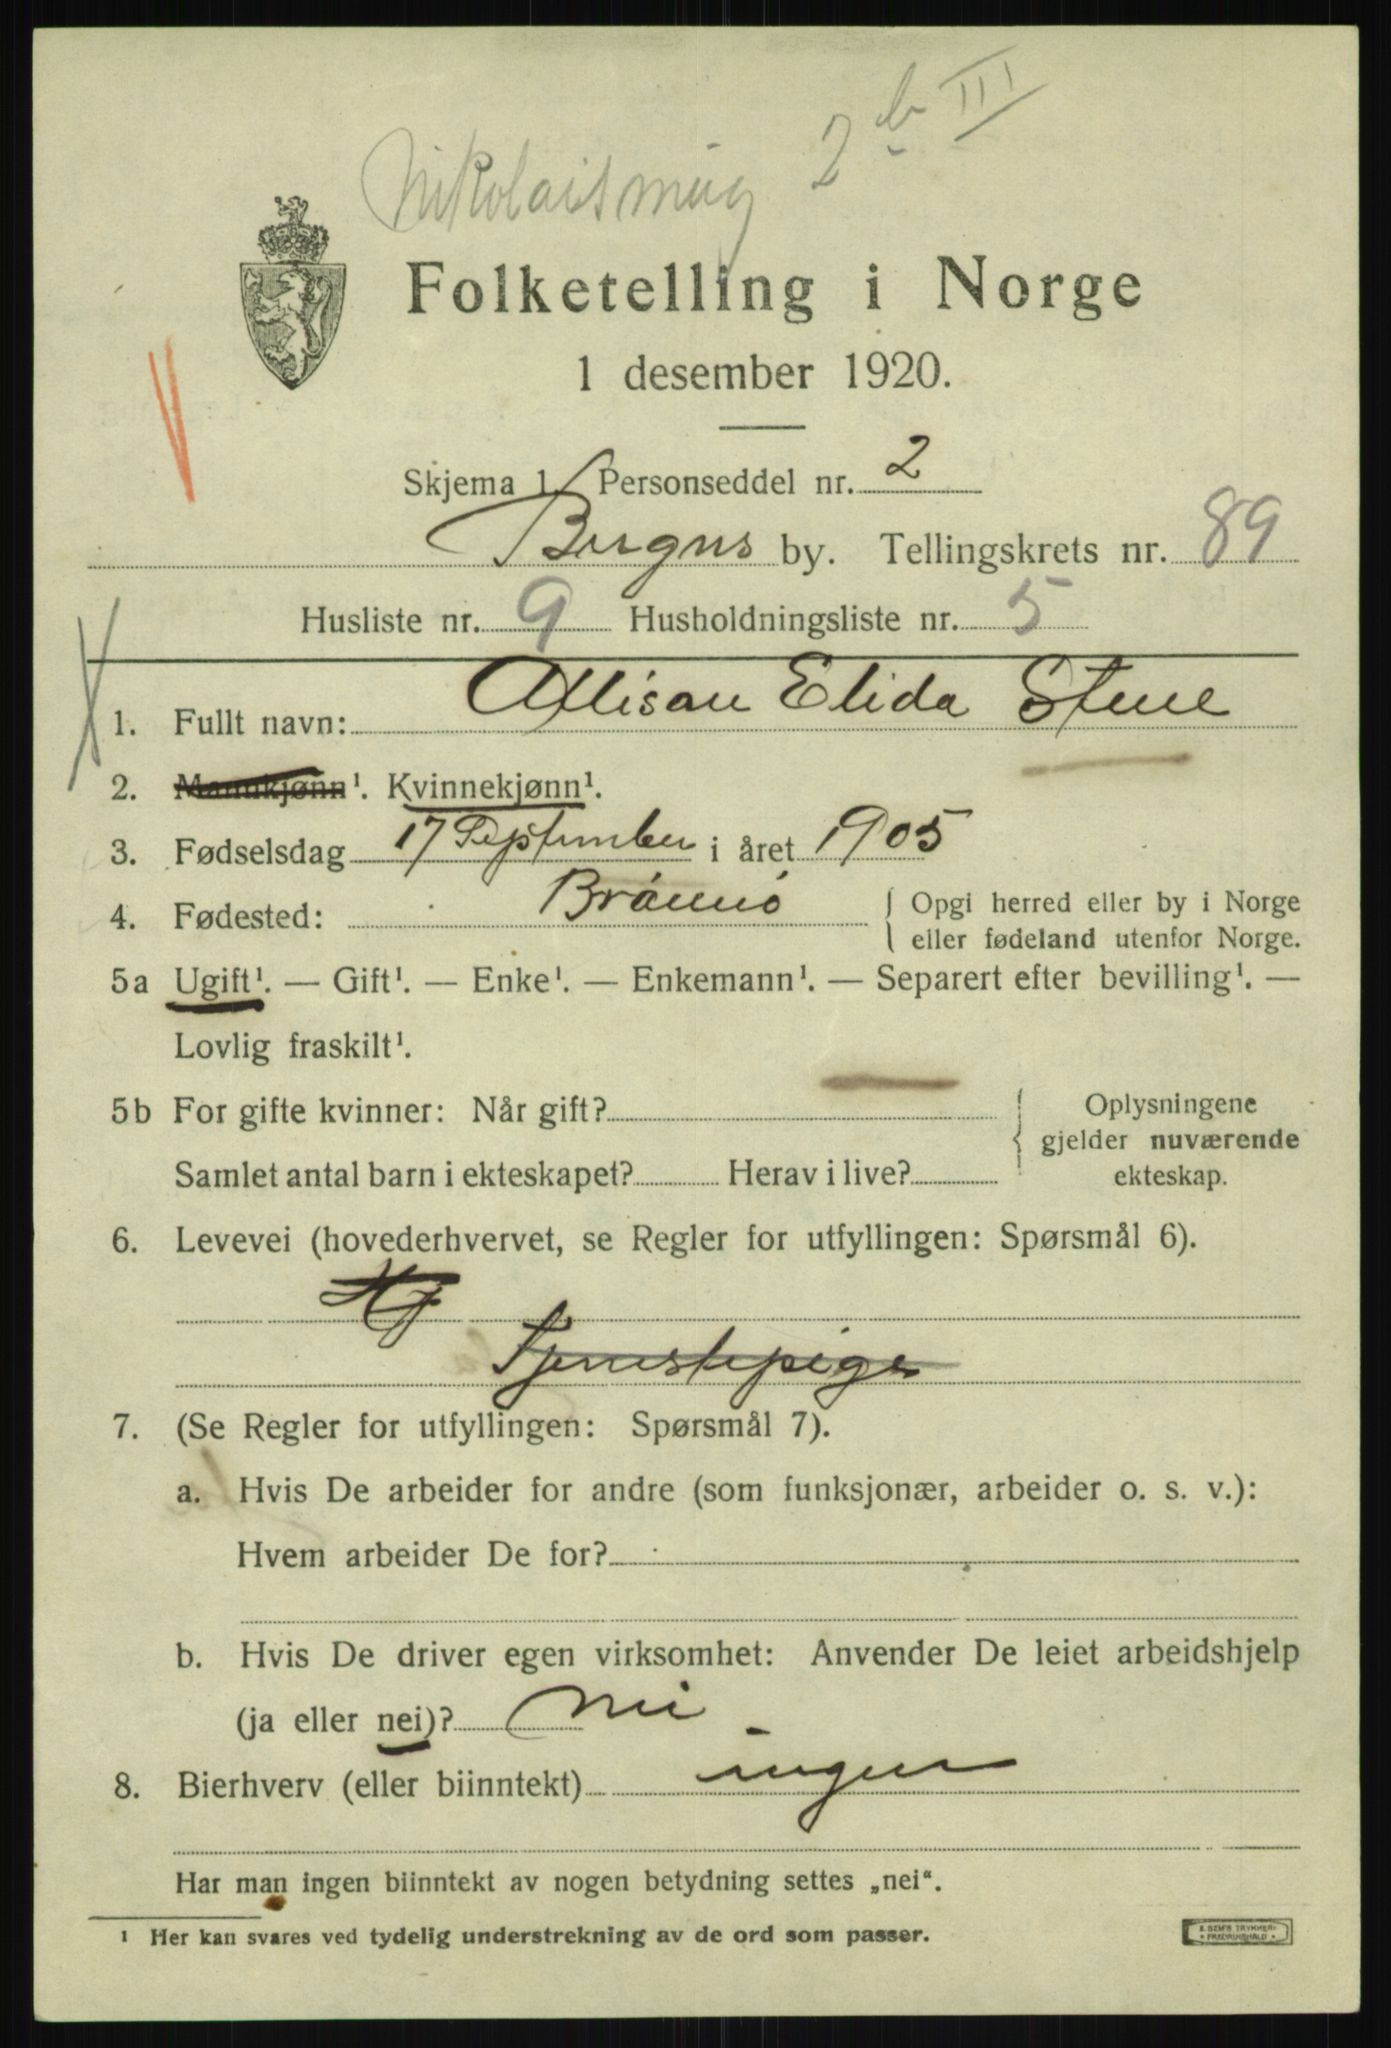 Nikolaismug 2 b III
Folketelling i Norge
1 desember 1920.
Skjema 1 Personseddel nr. 2
Bergens by. Tellingskrets nr. 89
Husliste nr. 9 Husholdningsliste nr. 5
1. Fullt navn: Allisan Elida Stene
2. Mannkjønn¹. Kvinnekjønn¹.
3. Fødselsdag 17 September i året 1905
4. Fødested: Brönnö { Opgi herred eller by i Norge
eller fødeland utenfor Norge.
5a Ugift¹. — Gift¹. — Enke¹. — Enkemann¹. — Separert efter bevilling¹. —
Lovlig fraskilt¹.
5b For gifte kvinner: Når gift? { Oplysningene
gjelder nuværende
Samlet antal barn i ekteskapet? Herav i live? ekteskap.
6. Levevei (hovederhvervet, se Regler for utfyllingen: Spørsmål 6).
Hj
Tjenestepige
7. (Se Regler for utfyllingen: Spørsmål 7).
a. Hvis De arbeider for andre (som funksjonær, arbeider o. s. v.):
Hvem arbeider De for?
b. Hvis De driver egen virksomhet: Anvender De leiet arbeidshjelp
(ja eller nei)? nei
8. Bierhverv (eller biinntekt) ingen
Har man ingen biinntekt av nogen betydning settes „nei“.
¹ Her kan svares ved tydelig understrekning av de ord som passer.
E. SEM'S TRYKKERI
FREDRIKSHALD